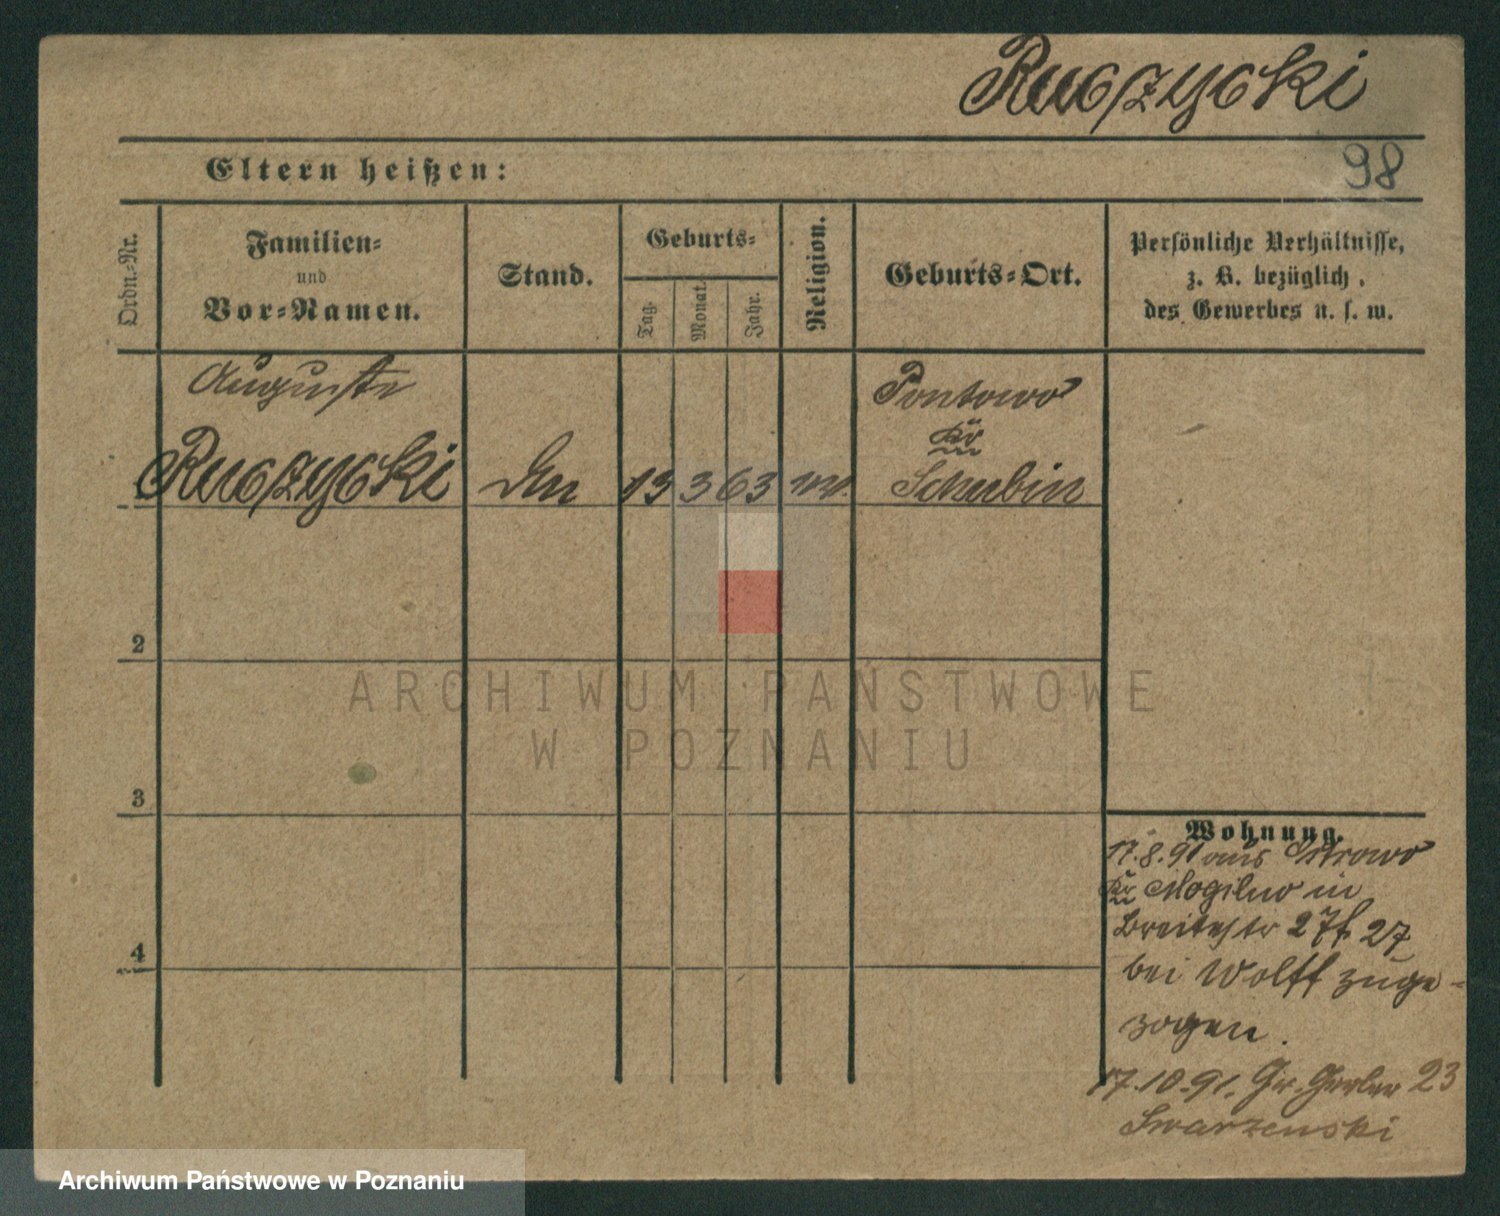 Ruczycki
98
Eltern heißen:
Ordn.-Nr.
Familien-
und
Vor-Namen.
Stand.
Geburts-
Tag.
Monat.
Jahr.
Religion.
Geburts-Ort.
Persönliche Verhältnisse,
z. B. bezüglich
des Gewerbes u. s. w.
Auguste
1 Ruczycki 13 3 63
Schubin
2
3
4
Wohnung.
17.8.91 aus Ostrowo
Kr Mogilno in
Breitestr 27 27
bei Wolff zuge-
zogen.
17.10.91. Gr. Gerber 23
Swarzenski
ARCHIWUM PAŃSTWOWE
W POZNANIU
Archiwum Państwowe w Poznaniu